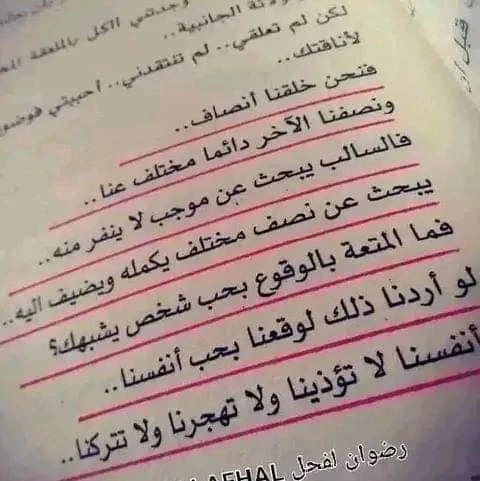 وجدتني الكل بالملعقة
الجانبية..
لكن لم تعلقي.. لم تنتقدني.. احببتي
لأناقتك..
فنحن خلقنا أنصاف..
ونصفنا الآخر دائما مختلف عنا..
فالسالب يبحث عن موجب لا ينفر منه..
يبحث عن نصف مختلف يكمله ويضيف اليه..
فما المتعة بالوقوع بحب شخص يشبهك؟
لو أردنا ذلك لوقعنا بحب أنفسنا..
أنفسنا لا تؤذينا ولا تهجرنا ولا تتركنا..
رضوان لفحل AFHAL
قبل